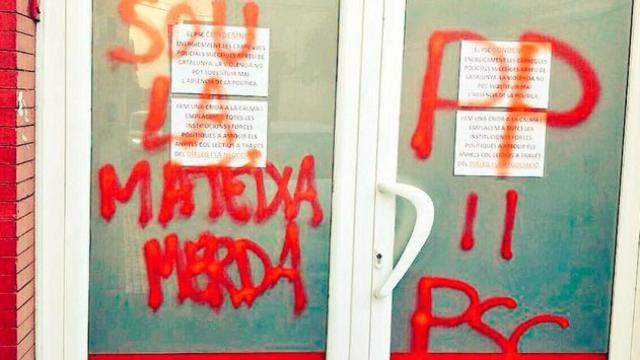 SOU
LA
MATEIXA
MERDA
EL PSC CONDEMNA
ENÈRGICAMENT LES CÀRREGUES
POLICIALS SUCCEÏDES ARREU DE
CATALUNYA. LA VIOLÈNCIA NO
POT SUBSTITUIR MAI
L'ABSÈNCIA DE LA POLÍTICA.
FEM UNA CRIDA A LA CALMA I
EMPLACEM A TOTES LES
INSTITUCIONS I FORCES
POLÍTIQUES A ASSOLIR ELS
ANHELS COL·LECTIUS A TRAVÉS
DEL DIÀLEG I LA NEGOCIACIÓ
PP
=
PSC
EL PSC CONDEMNA
ENÈRGICAMENT LES CÀRREGUES
POLICIALS SUCCEÏDES ARREU DE
CATALUNYA. LA VIOLÈNCIA NO
POT SUBSTITUIR MAI
L'ABSÈNCIA DE LA POLÍTICA.
FEM UNA CRIDA A LA CALMA I
EMPLACEM A TOTES LES
INSTITUCIONS I FORCES
POLÍTIQUES A ASSOLIR ELS
ANHELS COL·LECTIUS A TRAVÉS
DEL DIÀLEG I LA NEGOCIACIÓ